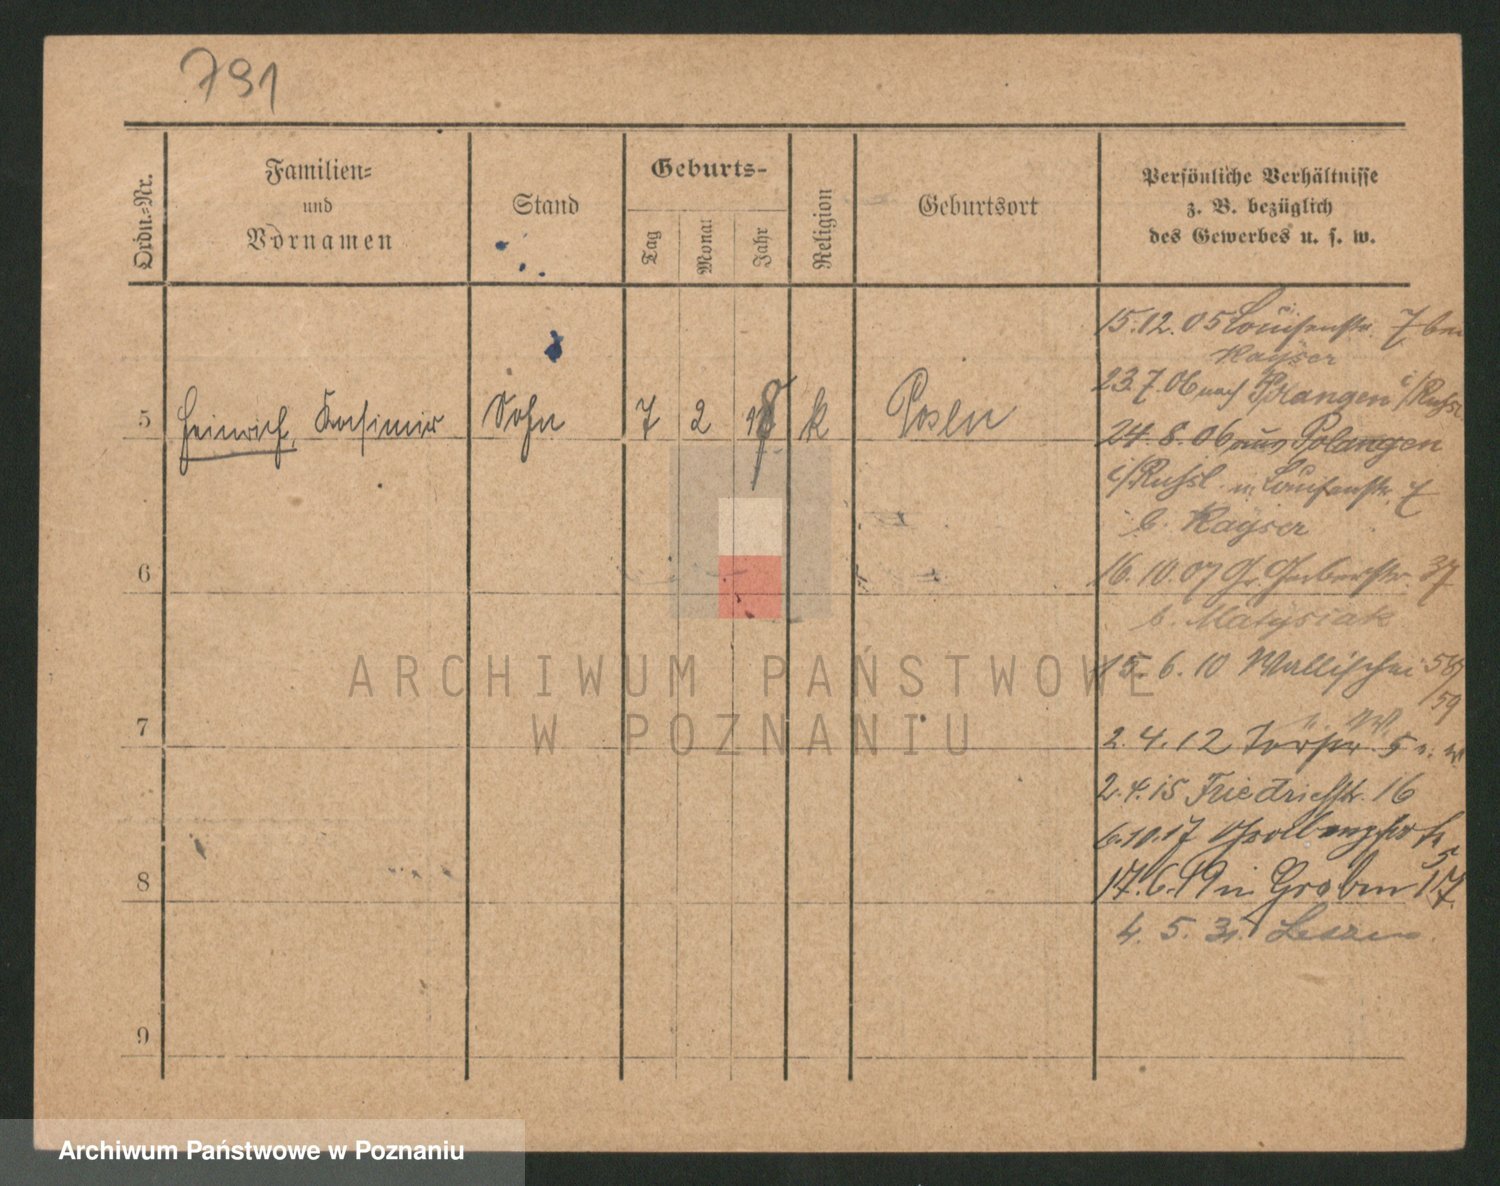 791
Ordn.=Nr.
Familien=
und
Vornamen
Stand
Geburts-
Tag
Monat
Jahr
Religion
Geburtsort
Persönliche Verhältnisse
z. B. bezüglich
des Gewerbes u. s. w.
5 Heinrich, Kasimir Sohn 7 2 k Posen
6
7
8
9
15.12.05 Louisenstr. 7 bei
Kayser
23.7.06 nach Polangen i/Russl
24.8.06 aus Polangen
i/Russl. n. Louisenstr. 7
b. Kayser
16.10.07 Gr. Gerberstr. 37
b. Matysiak
15.6.10 Wallischei 58/
/59
2.4.12 5
2.4.15 Friedrichstr. 16
6.10.17
17.6.19 in Graben 17
4. 5. 31.
ARCHIWUM PAŃSTWOWE
W POZNANIU
Archiwum Państwowe w Poznaniu